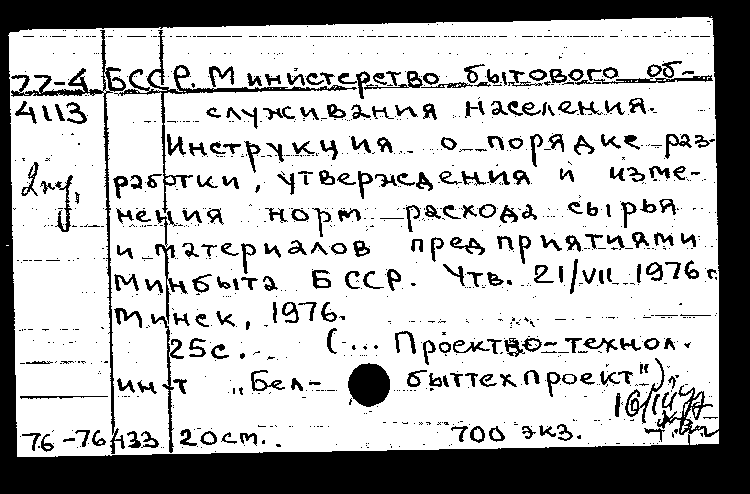 77-4 БССР. Министерство бытового об-
4113 служивания населения.
Инструкция о порядке раз-
работки, утверждения и изме-
нения норм расхода сырья
и материалов предприятиями
Минбыта БССР. Утв. 21/VII 1976 г.
Минск, 1976.
25с. (... Проектно-технол.
ин-т „Бел- быттехпроект").
76-76433 20см.. 700 экз.